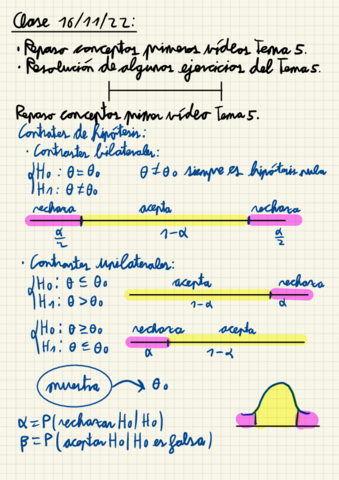 Clase 16/11/22:
• Repaso conceptos primeros vídeos Tema 5.
• Resolución de algunos ejercicios del Tema 5.
Repaso conceptos primer vídeo Tema 5.
Contrastes de hipótesis:
• Contrastes bilaterales:
{H0: θ = θ0 θ ≠ θ0 siempre es hipótesis nula
H1: θ ≠ θ0
rechaza acepta rechaza
α/2 1-α α/2
• Contrastes unilaterales:
{H0: θ ≤ θ0 acepta rechaza
H1: θ > θ0 1-α α
{H0: θ ≥ θ0 rechaza acepta
H1: θ ≤ θ0 α 1-α
muestra → θ0
α = P(rechazar H0 | H0)
β = P(aceptar H0 | H0 es falsa)